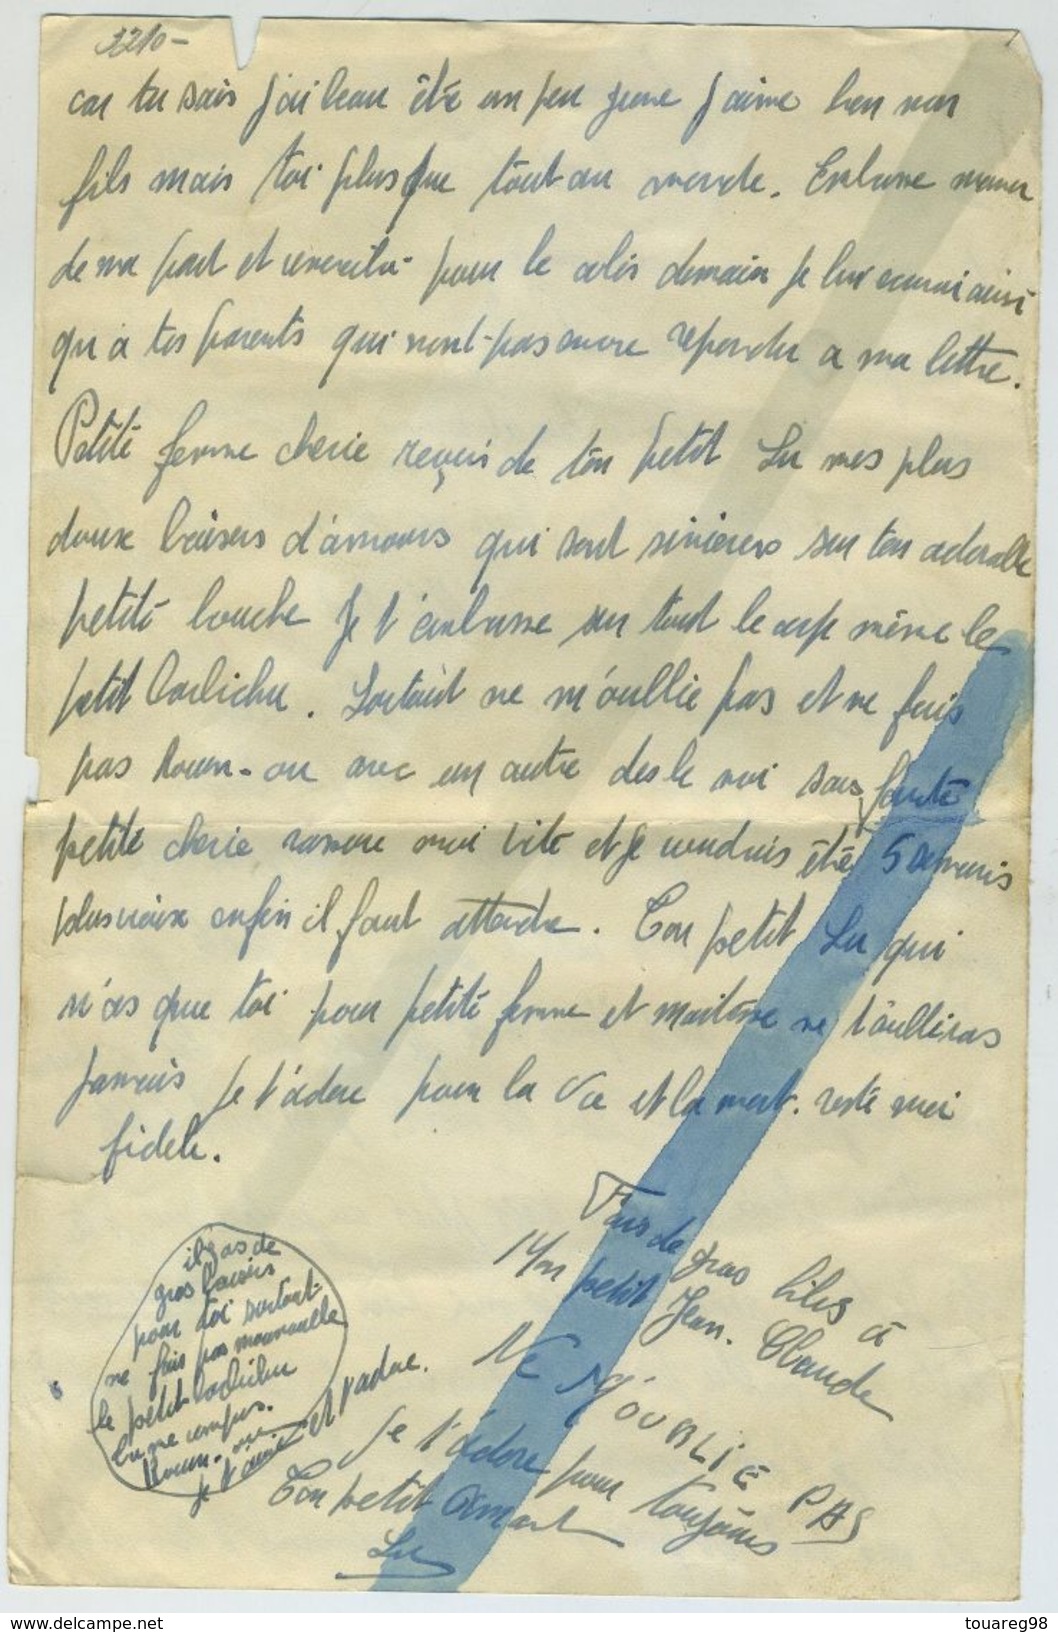 3210-
car tu sais j'ai beau être un peu jeune j'aime bien mon
fils mais toi plus que tout au monde. Embrasse maman
de ma part et remercila pour le colis demain je lui ecrirai ainsi
qu'a tes parents qui n'ont pas encore repondu a ma lettre.
Petite femme cherie reçois de ton petit Lu mes plus
doux baisers d'amours qui sont sinceres sur ton adorable
petite bouche Je t'embrasse sur tout le corp même le
petit barlichu. Surtout ne m'oublie pas et ne fais
pas houm-ou avec un autre des le moi sans faute
petite cherie ramene moi vite et je voudrais être 5 semaines
plus vieux enfin il faut attendre. Ton petit Lu qui
n'as que toi pour petite femme et maitresse ne t'oublieras
jamais je t'adore pour la vie et la mort. reste moi
fidele.
Fais de gros bibis à
mon petit Jean-Claude
il y as de
gros baisers
pour toi surtout
ne fais pas
le petit barlichu
tu me comprs.
houm-ou
Je t'aime et t'adore.
NE M'OUBLIE PAS
Je t'adore pour toujours
Ton petit Amant
Lu
delcampe.net
touareg98